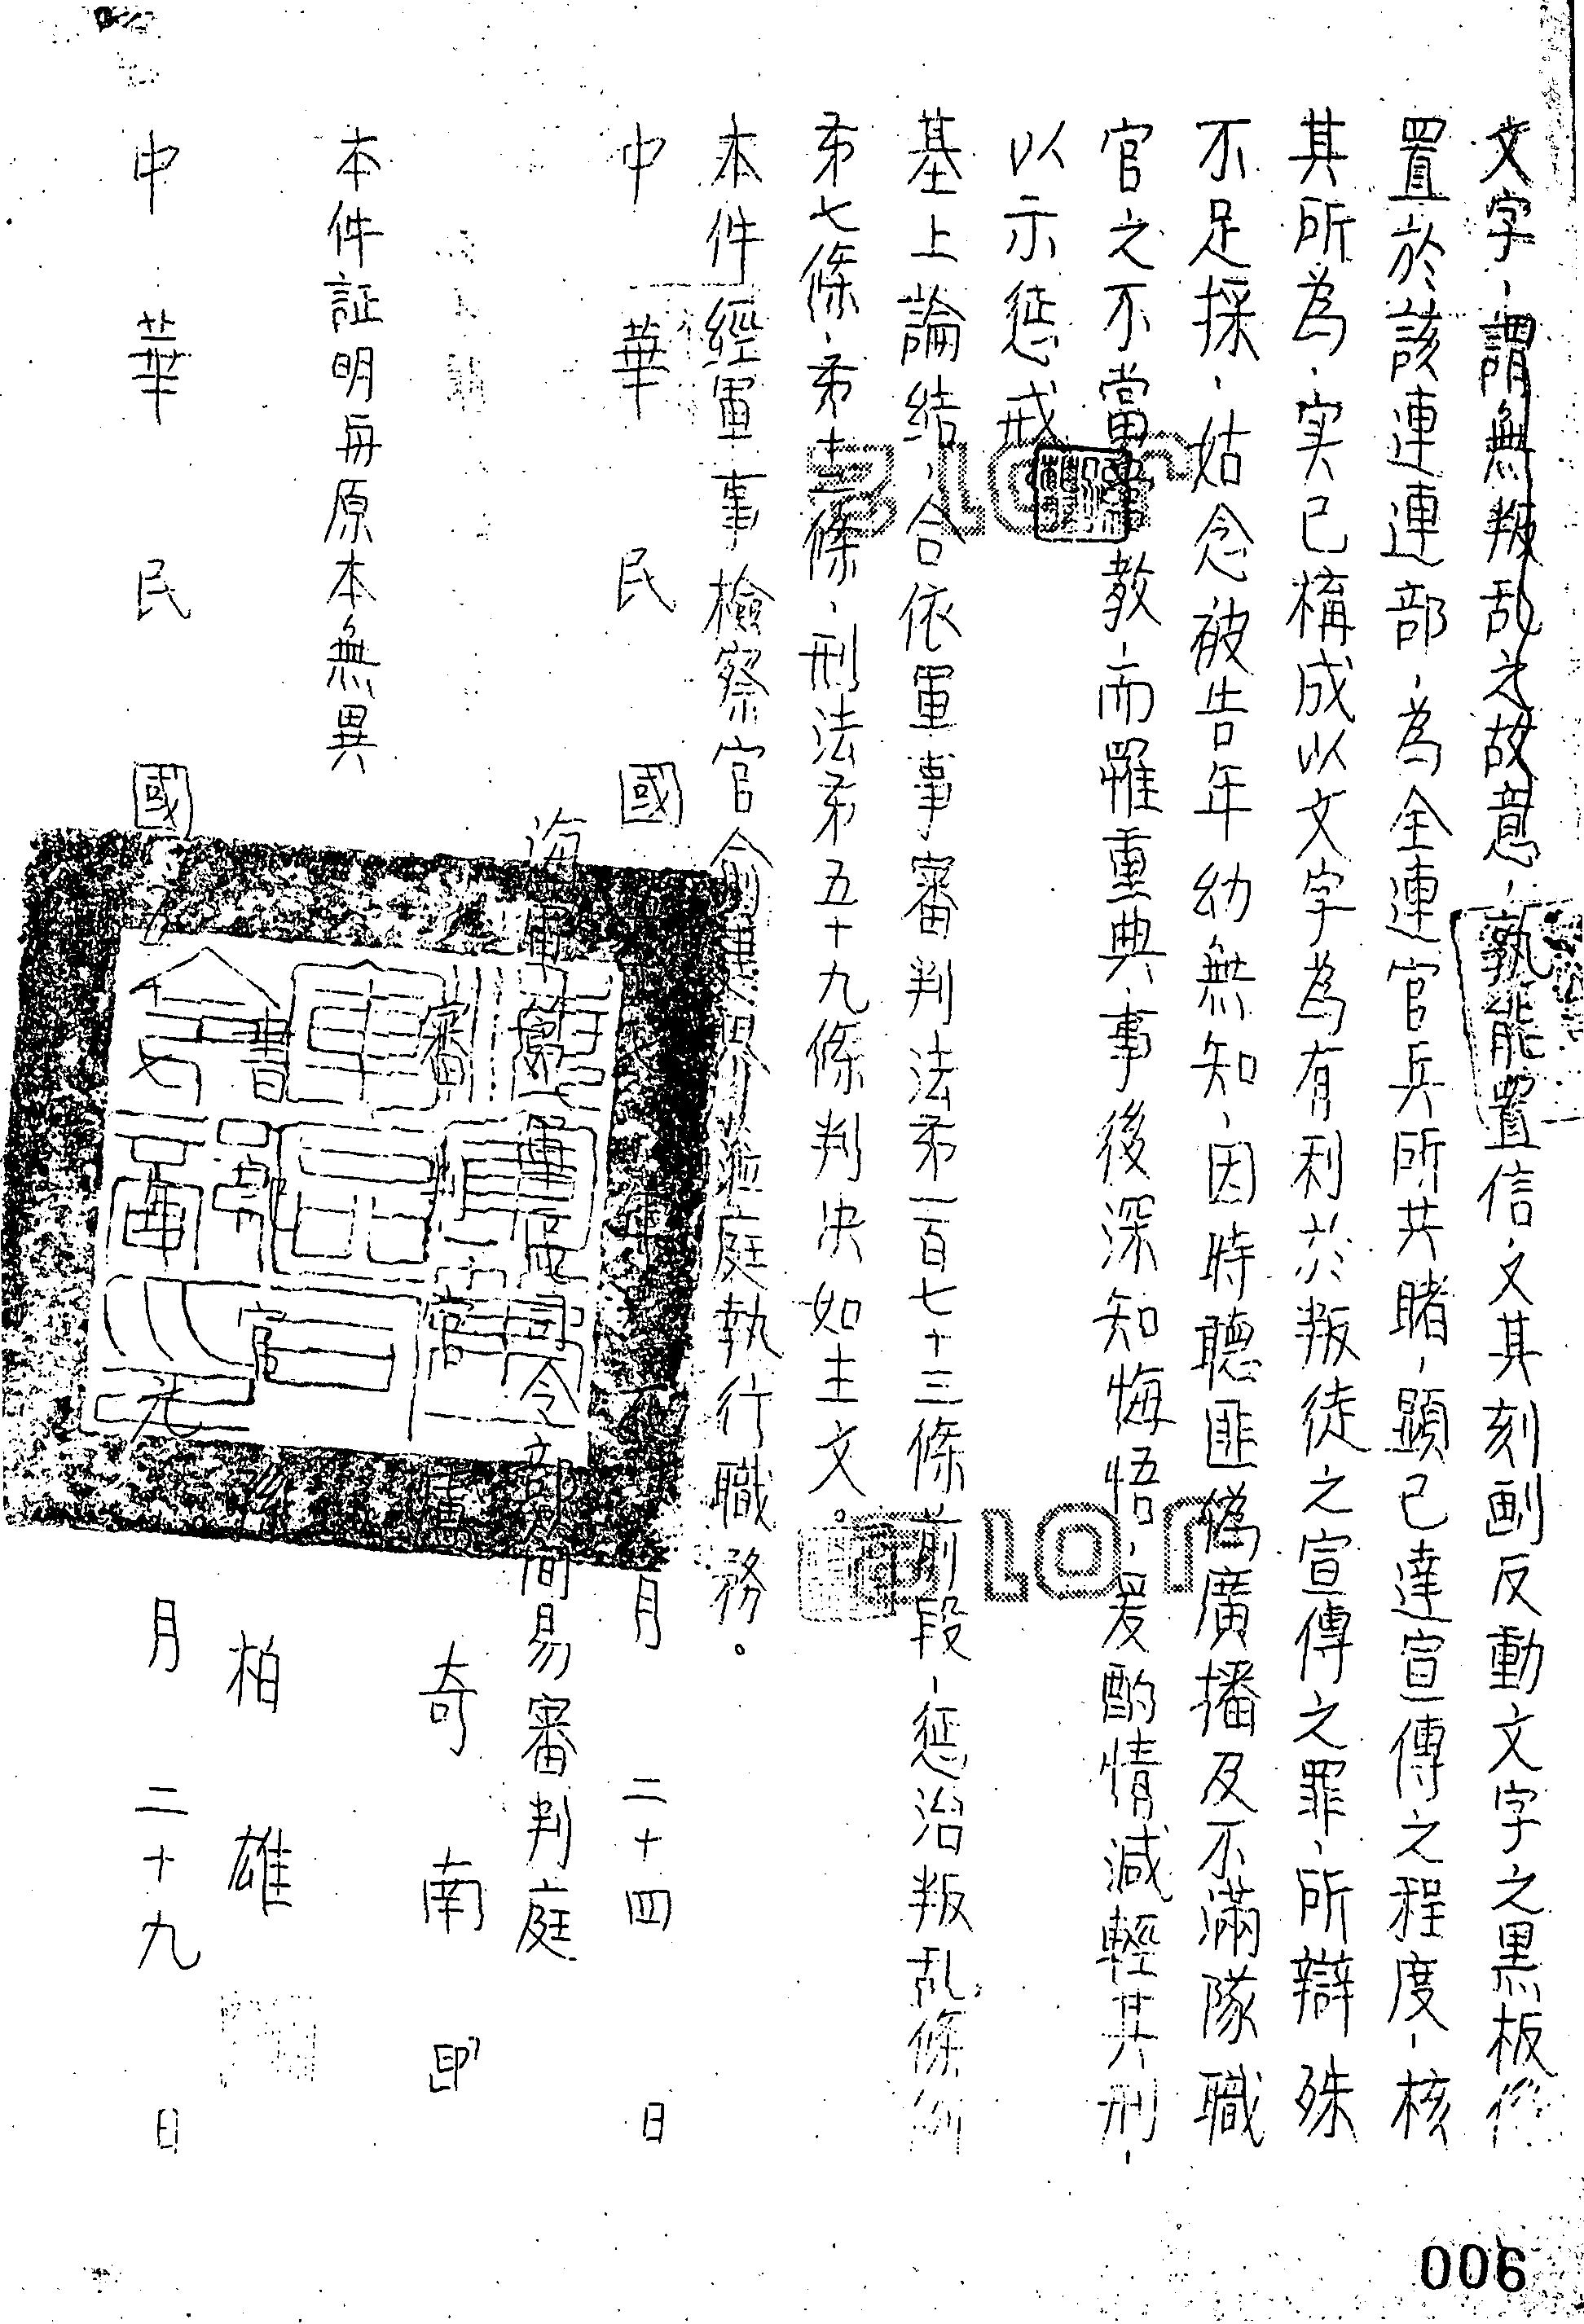 文字，謂無叛乱之故意，孰能置信，又其刻画反動文字之黑板
置於該連連部，為全連官兵所共睹，顯已達宣傳之程度，核
其所為，实已構成以文字為有利於叛徒之宣傳之罪，所辯殊
不足採，姑念被告年幼無知，因時聽匪偽廣播及不滿隊職
官之不當 教，而罹重典，事後深知悔悟，爰酌情減輕其刑，
以示惩戒
基上論結，合依軍事審判法苐一百七十三條前段，惩治叛乱條例
苐七條，苐 條，刑法苐五十九條判决如主文。
本件經軍事檢察官俞 庭執行職務。
中華民國 月二十四日
海軍第 軍區司令部簡易審判庭
審判官 奇南 印
本件証明与原本無異
書記官 柏雄
中華民國五 月二十九日
006